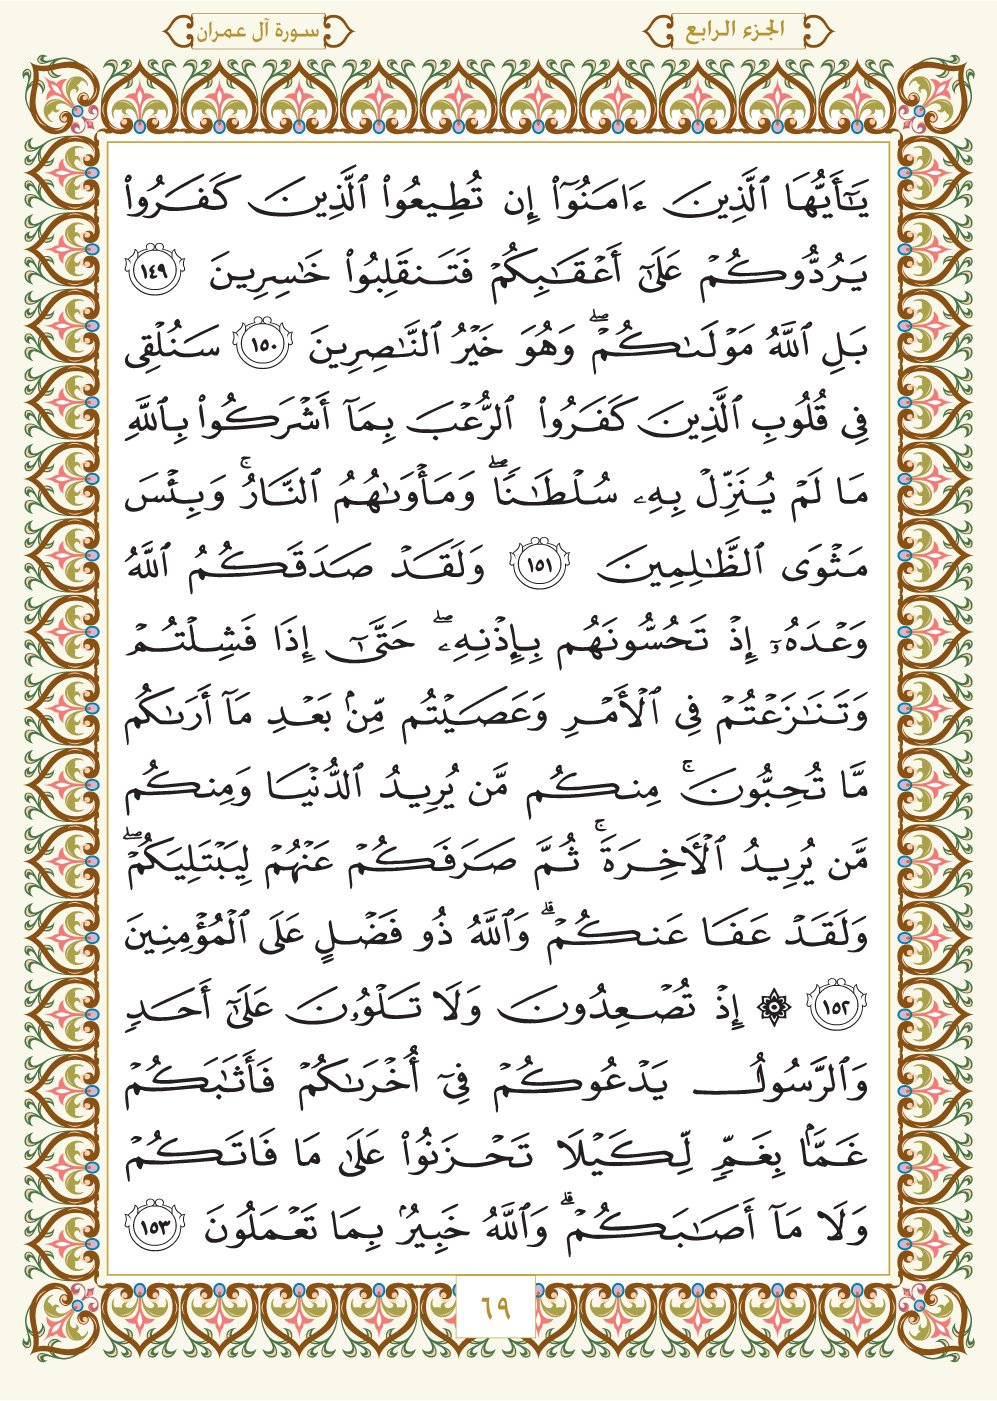 الجزء الرابع
سورة آل عمران
يَٰٓأَيُّهَا ٱلَّذِينَ ءَامَنُوٓاْ إِن تُطِيعُواْ ٱلَّذِينَ كَفَرُواْ
يَرُدُّوكُمْ عَلَىٰٓ أَعْقَٰبِكُمْ فَتَنقَلِبُواْ خَٰسِرِينَ ١٤٩
بَلِ ٱللَّهُ مَوْلَىٰكُمْۖ وَهُوَ خَيْرُ ٱلنَّٰصِرِينَ ١٥٠ سَنُلْقِى
فِى قُلُوبِ ٱلَّذِينَ كَفَرُواْ ٱلرُّعْبَ بِمَآ أَشْرَكُواْ بِٱللَّهِ
مَا لَمْ يُنَزِّلْ بِهِۦ سُلْطَٰنًاۖ وَمَأْوَىٰهُمُ ٱلنَّارُۚ وَبِئْسَ
مَثْوَى ٱلظَّٰلِمِينَ ١٥١ وَلَقَدْ صَدَقَكُمُ ٱللَّهُ
وَعْدَهُۥٓ إِذْ تَحُسُّونَهُم بِإِذْنِهِۦۖ حَتَّىٰٓ إِذَا فَشِلْتُمْ
وَتَنَٰزَعْتُمْ فِى ٱلْأَمْرِ وَعَصَيْتُم مِّنۢ بَعْدِ مَآ أَرَىٰكُم
مَّا تُحِبُّونَۚ مِنكُم مَّن يُرِيدُ ٱلدُّنْيَا وَمِنكُم
مَّن يُرِيدُ ٱلْأَخِرَةَۚ ثُمَّ صَرَفَكُمْ عَنْهُمْ لِيَبْتَلِيَكُمْۖ
وَلَقَدْ عَفَا عَنكُمْۗ وَٱللَّهُ ذُو فَضْلٍ عَلَى ٱلْمُؤْمِنِينَ
١٥٢ ۞ إِذْ تُصْعِدُونَ وَلَا تَلْوُۥنَ عَلَىٰٓ أَحَدٍ
وَٱلرَّسُولُ يَدْعُوكُمْ فِىٓ أُخْرَىٰكُمْ فَأَثَٰبَكُمْ
غَمًّۢا بِغَمٍّ لِّكَيْلَا تَحْزَنُواْ عَلَىٰ مَا فَاتَكُمْ
وَلَا مَآ أَصَٰبَكُمْۗ وَٱللَّهُ خَبِيرٌۢ بِمَا تَعْمَلُونَ ١٥٣
٦٩